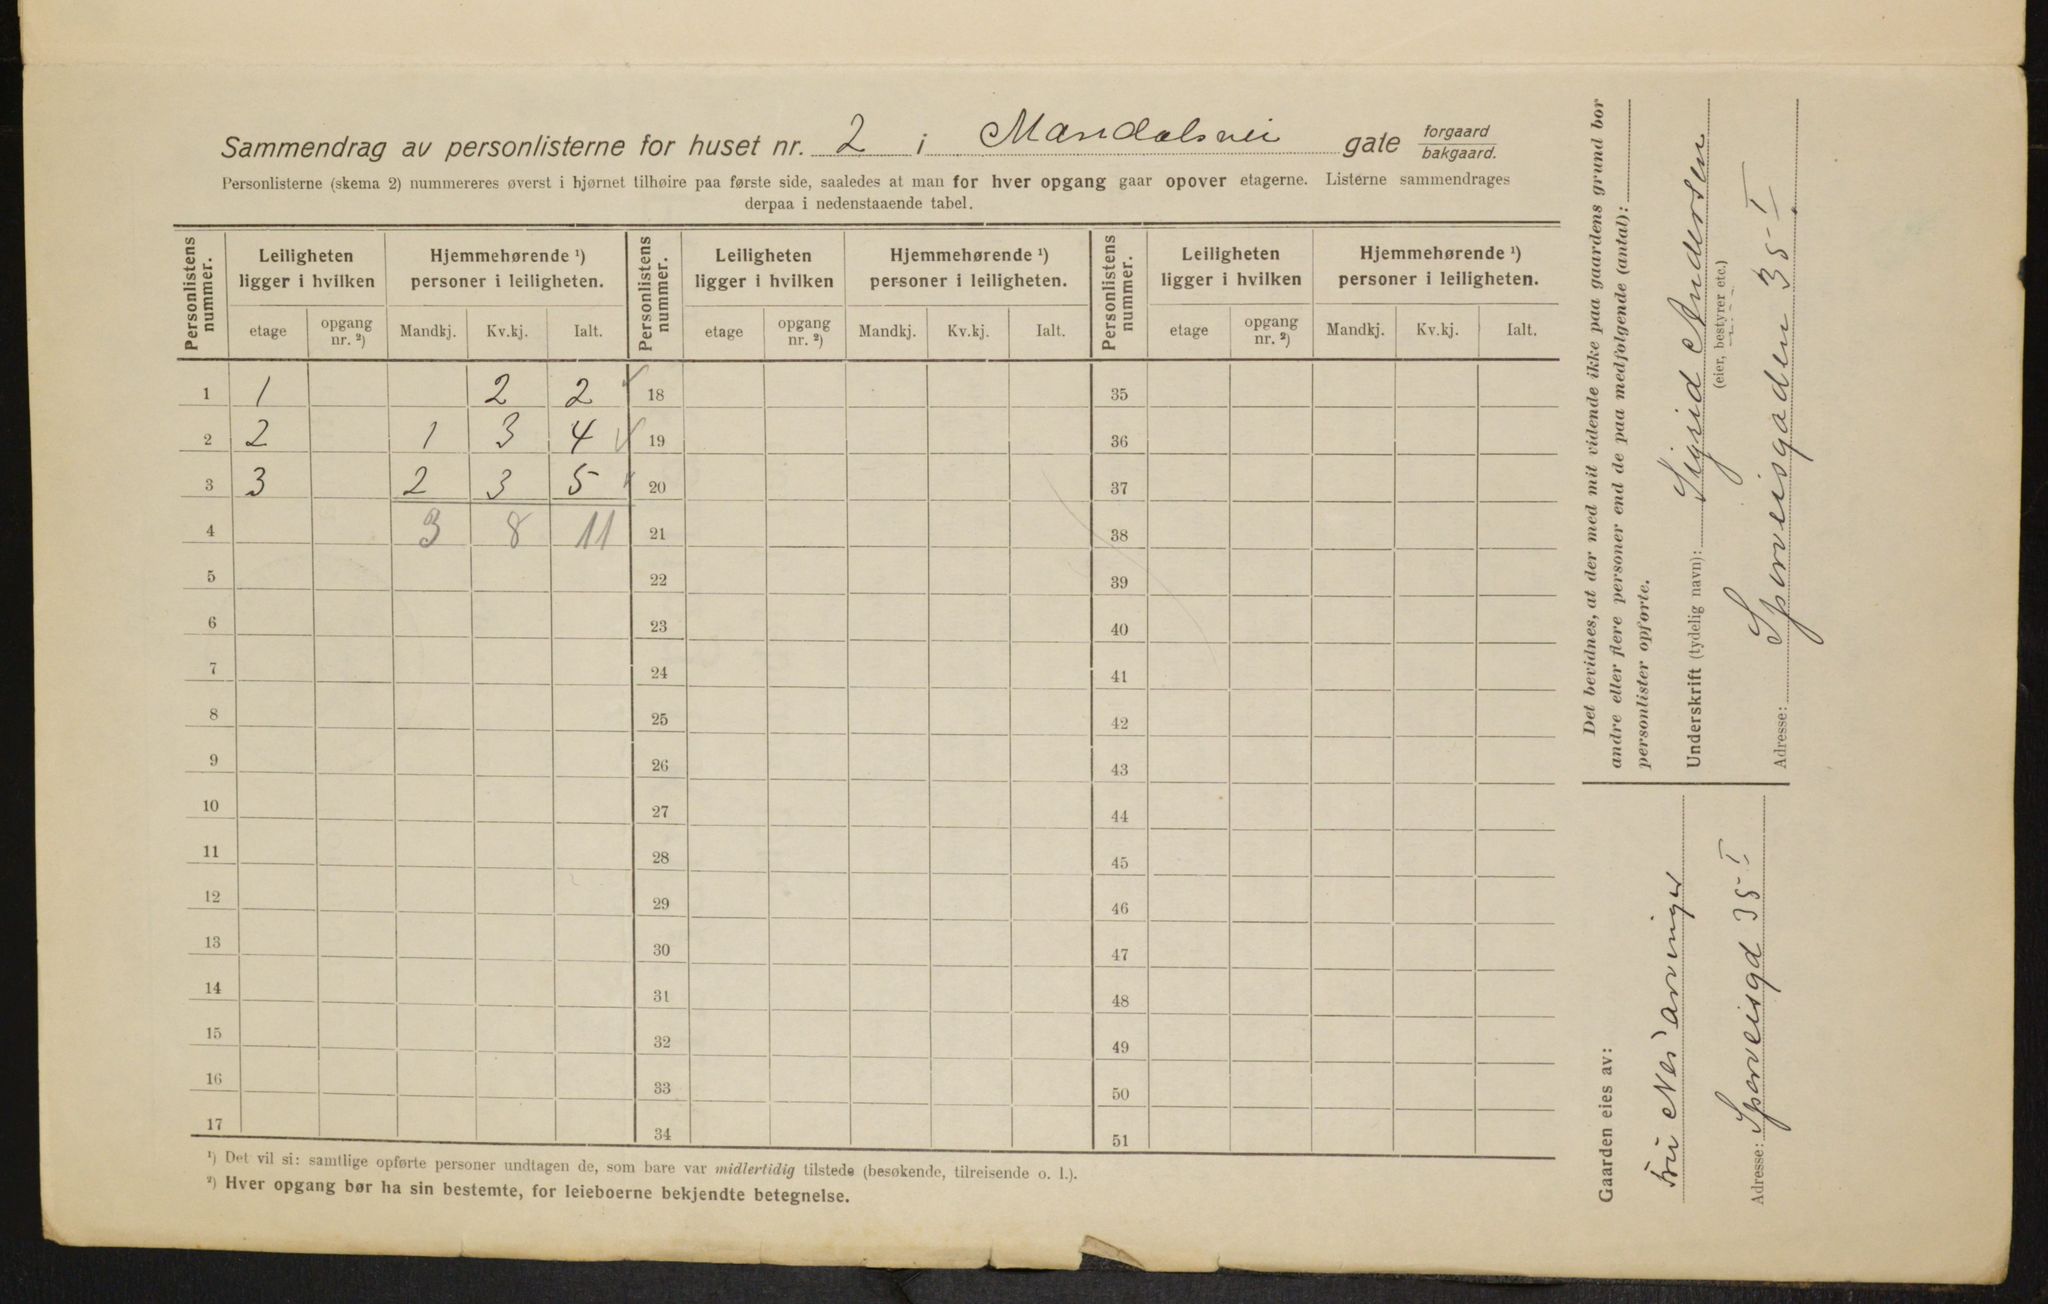 Sammendrag av personlisterne for huset nr. 2 i Mandalsvei gate forgaard bakgaard.
Personlisterne (skema 2) nummereres øverst i hjørnet tilhøire paa første side, saaledes at man for hver opgang gaar opover etagerne. Listerne sammendrages
derpaa i nedenstaaende tabel.
Personlistens nummer. Leiligheten ligger i hvilken Hjemmehørende ¹) personer i leiligheten. Personlistens nummer. Leiligheten ligger i hvilken Hjemmehørende ¹) personer i leiligheten. Personlistens nummer. Leiligheten ligger i hvilken Hjemmehørende ¹) personer i leiligheten.
etage opgang nr. ²) Mandkj. Kv.kj. Ialt. etage opgang nr. ²) Mandkj. Kv.kj. Ialt. etage opgang nr. ²) Mandkj. Kv.kj. Ialt.
1 1 2 2 18 35
2 2 1 3 4 19 36
3 3 2 3 5 20 37
4 3 8 11 21 38
5 22 39
6 23 40
7 24 41
8 25 42
9 26 43
10 27 44
11 28 45
12 29 46
13 30 47
14 31 48
15 32 49
16 33 50
17 34 51
¹) Det vil si: samtlige opførte personer undtagen de, som bare var midlertidig tilstede (besøkende, tilreisende o. l.).
²) Hver opgang bør ha sin bestemte, for leieboerne bekjendte betegnelse.
Det bevidnes, at der med mit vidende ikke paa gaardens grund bor
andre eller flere personer end de paa medfølgende (antal):
personlister opførte.
Underskrift (tydelig navn): Sigrid Andersen
(eier, bestyrer etc.)
Adresse: Sporveisgaden 35 I
Gaarden eies av:
Fru Nes' arvinger
Adresse: Sporveisgd 35 I